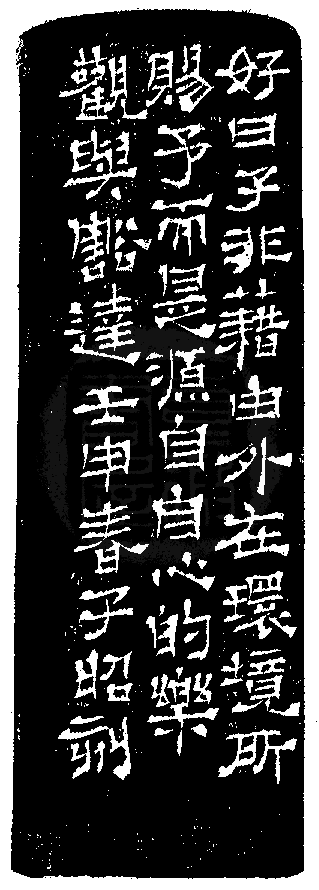 好日子非藉由外在環境所
賜予而是源自自身心的樂
觀與豁達壬申春子昭刻